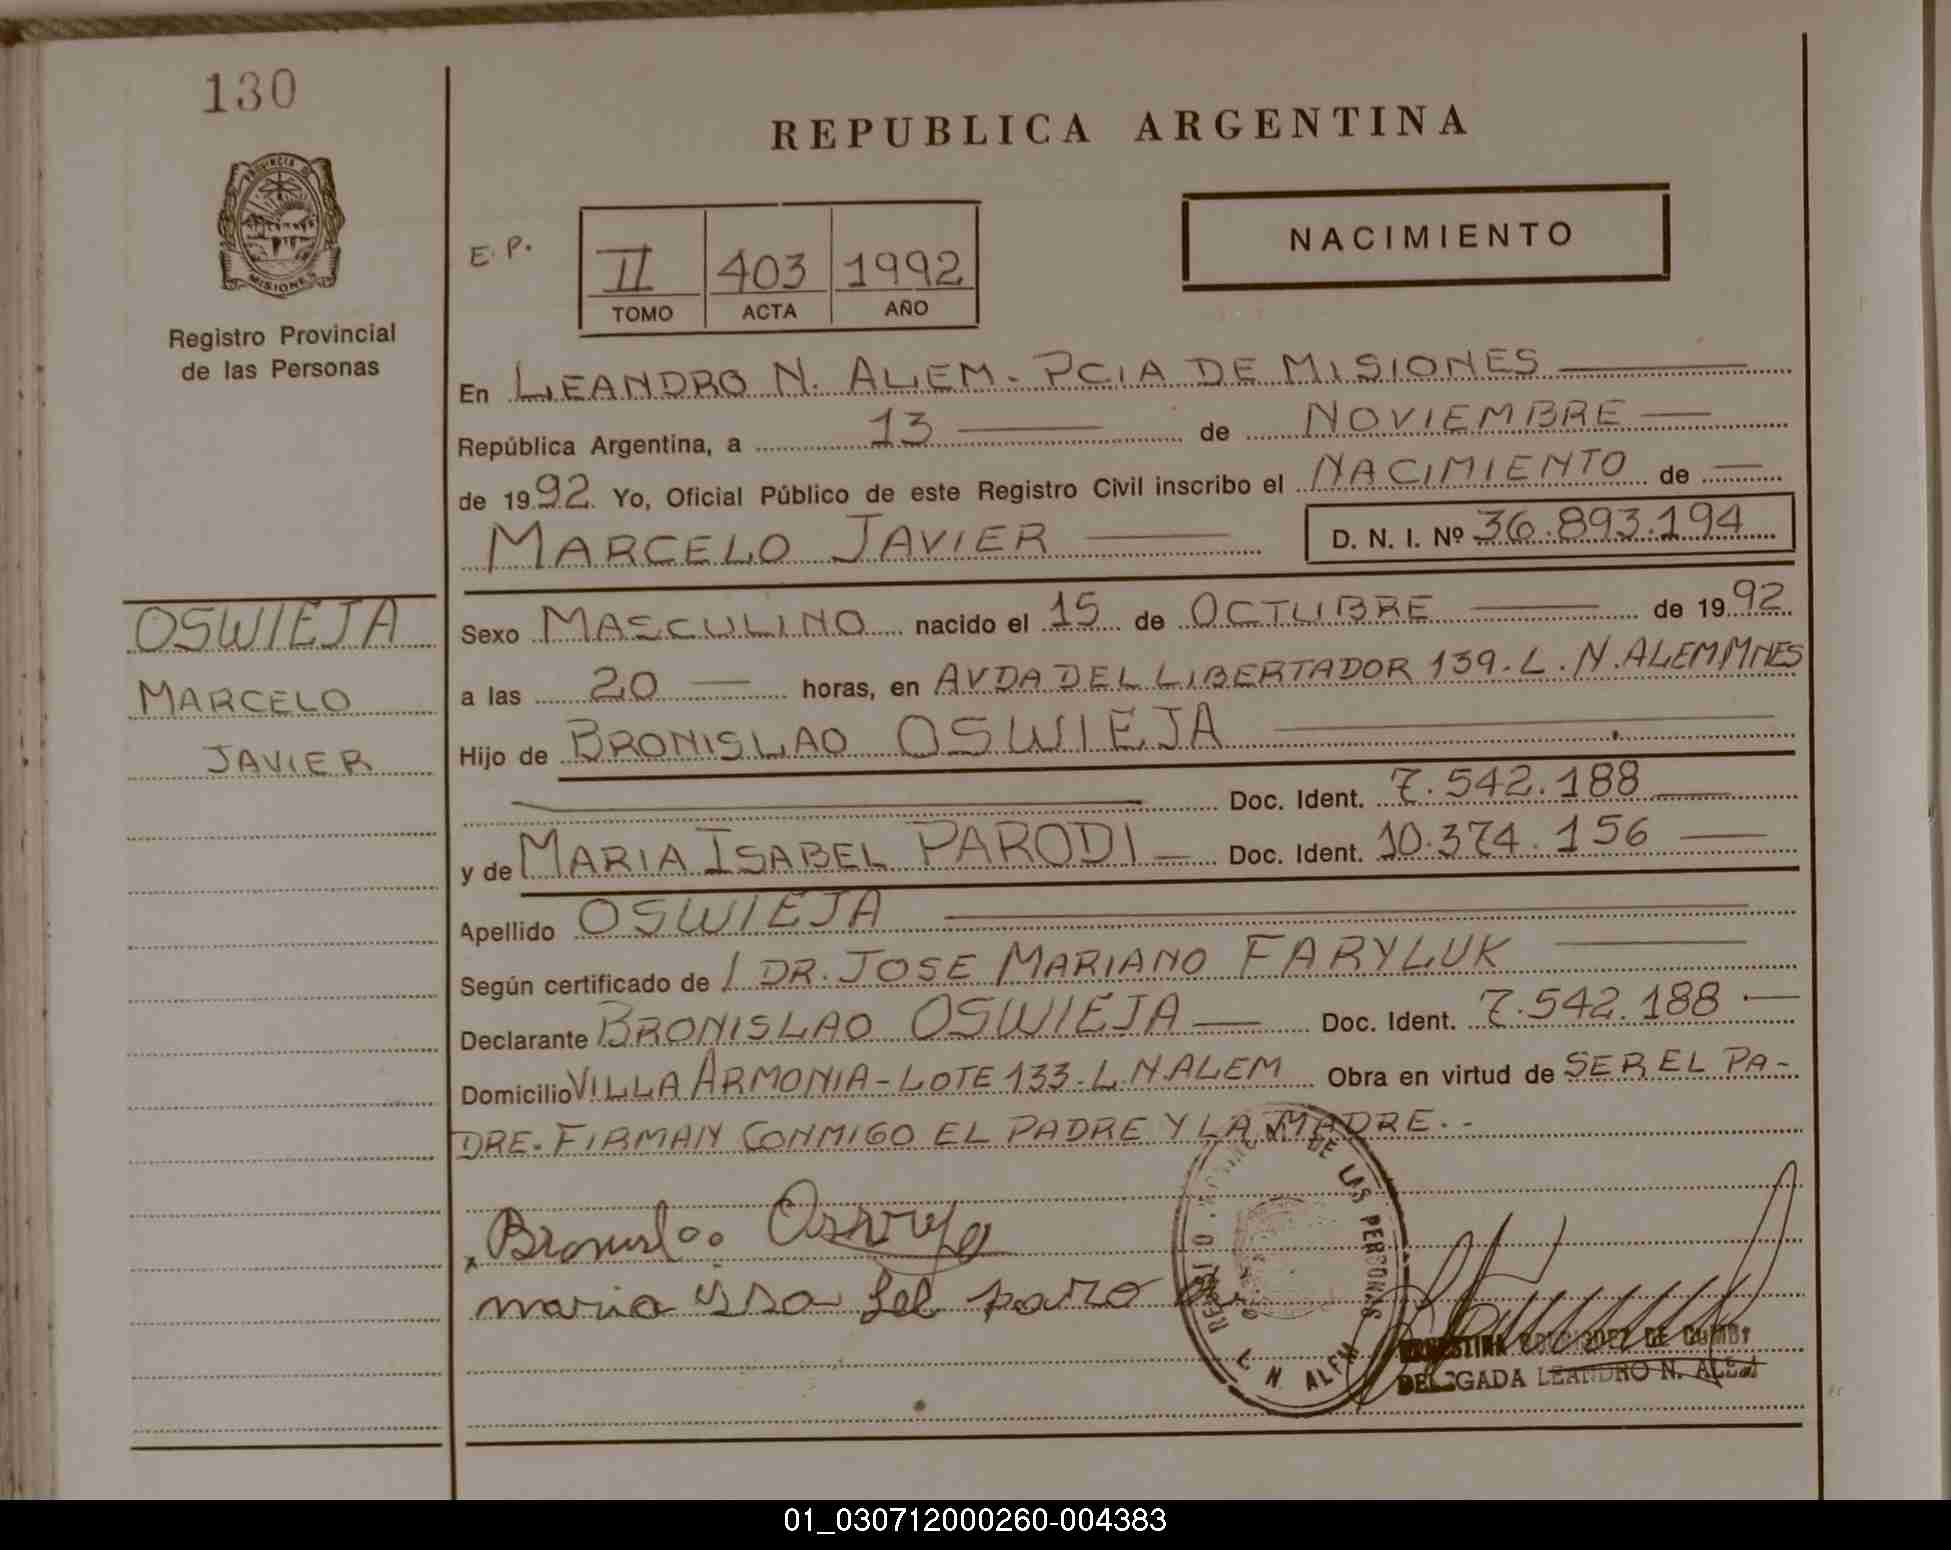 130
PROVINCIA DE
MISIONES
Registro Provincial
de las Personas
OSWIEJA
MARCELO
JAVIER
REPUBLICA ARGENTINA
E.P.
II 403 1992
TOMO ACTA AÑO
NACIMIENTO
En LEANDRO N. ALEM. PCIA DE MISIONES
República Argentina, a 13 de NOVIEMBRE
de 1992. Yo, Oficial Público de este Registro Civil inscribo el NACIMIENTO de
MARCELO JAVIER D. N. I. Nº 36.893.194
Sexo MASCULINO nacido el 15 de OCTUBRE de 1992
a las 20 horas, en AVDA DEL LIBERTADOR 139. L. N. ALEM MNES
Hijo de BRONISLAO OSWIEJA
Doc. Ident. 7.542.188
y de MARIA ISABEL PARODI Doc. Ident. 10.374.156
Apellido OSWIEJA
Según certificado de / DR. JOSE MARIANO FARYLUK
Declarante BRONISLAO OSWIEJA Doc. Ident. 7.542.188
Domicilio VILLA ARMONIA - LOTE 133. L. N. ALEM Obra en virtud de SER EL PA-
DRE. FIRMAN CONMIGO EL PADRE Y LA MADRE.-
DE LAS PERSONAS
L. N. ALEM
maria isa bel paro di
DELEGADA LEANDRO N. ALEM
01_030712000260-004383